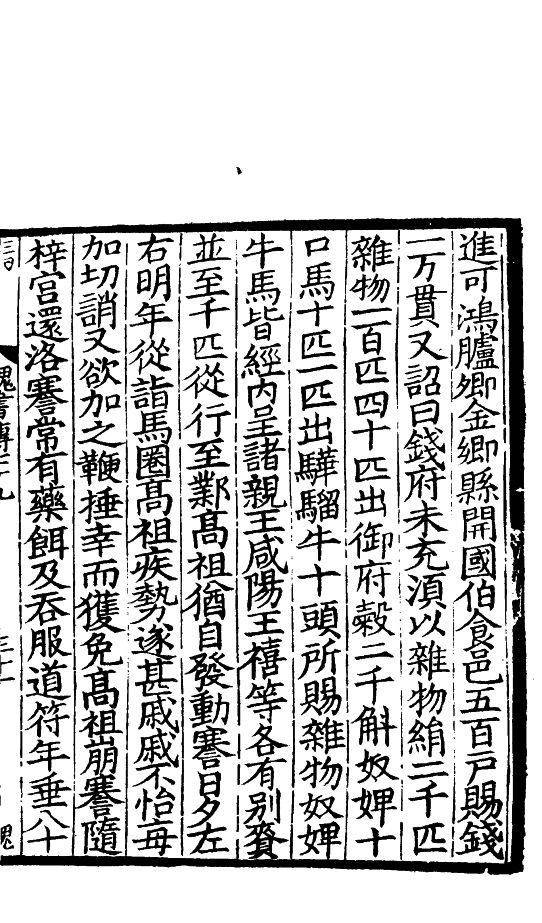 進可鴻臚卿金鄉縣開國伯食邑五百户賜錢
一万貫又詔曰錢府未充湏以雜物絹二千匹
雜物一百匹四十匹出御府糓二千斛奴婢十
口馬十匹一匹出驊騮牛十頭所賜雜物奴婢
牛馬皆經内呈諸親王咸陽王禧等各有别賚
並至千匹從行至鄴髙祖猶自發動謇日夕左
右明年從詣馬圈髙祖疾勢遂甚戚戚不怡每
加切誚又欲加之鞭捶幸而獲免髙祖崩謇隨
梓宫還洛謇常有藥餌及吞服道符年垂八十
魏書傳七十九